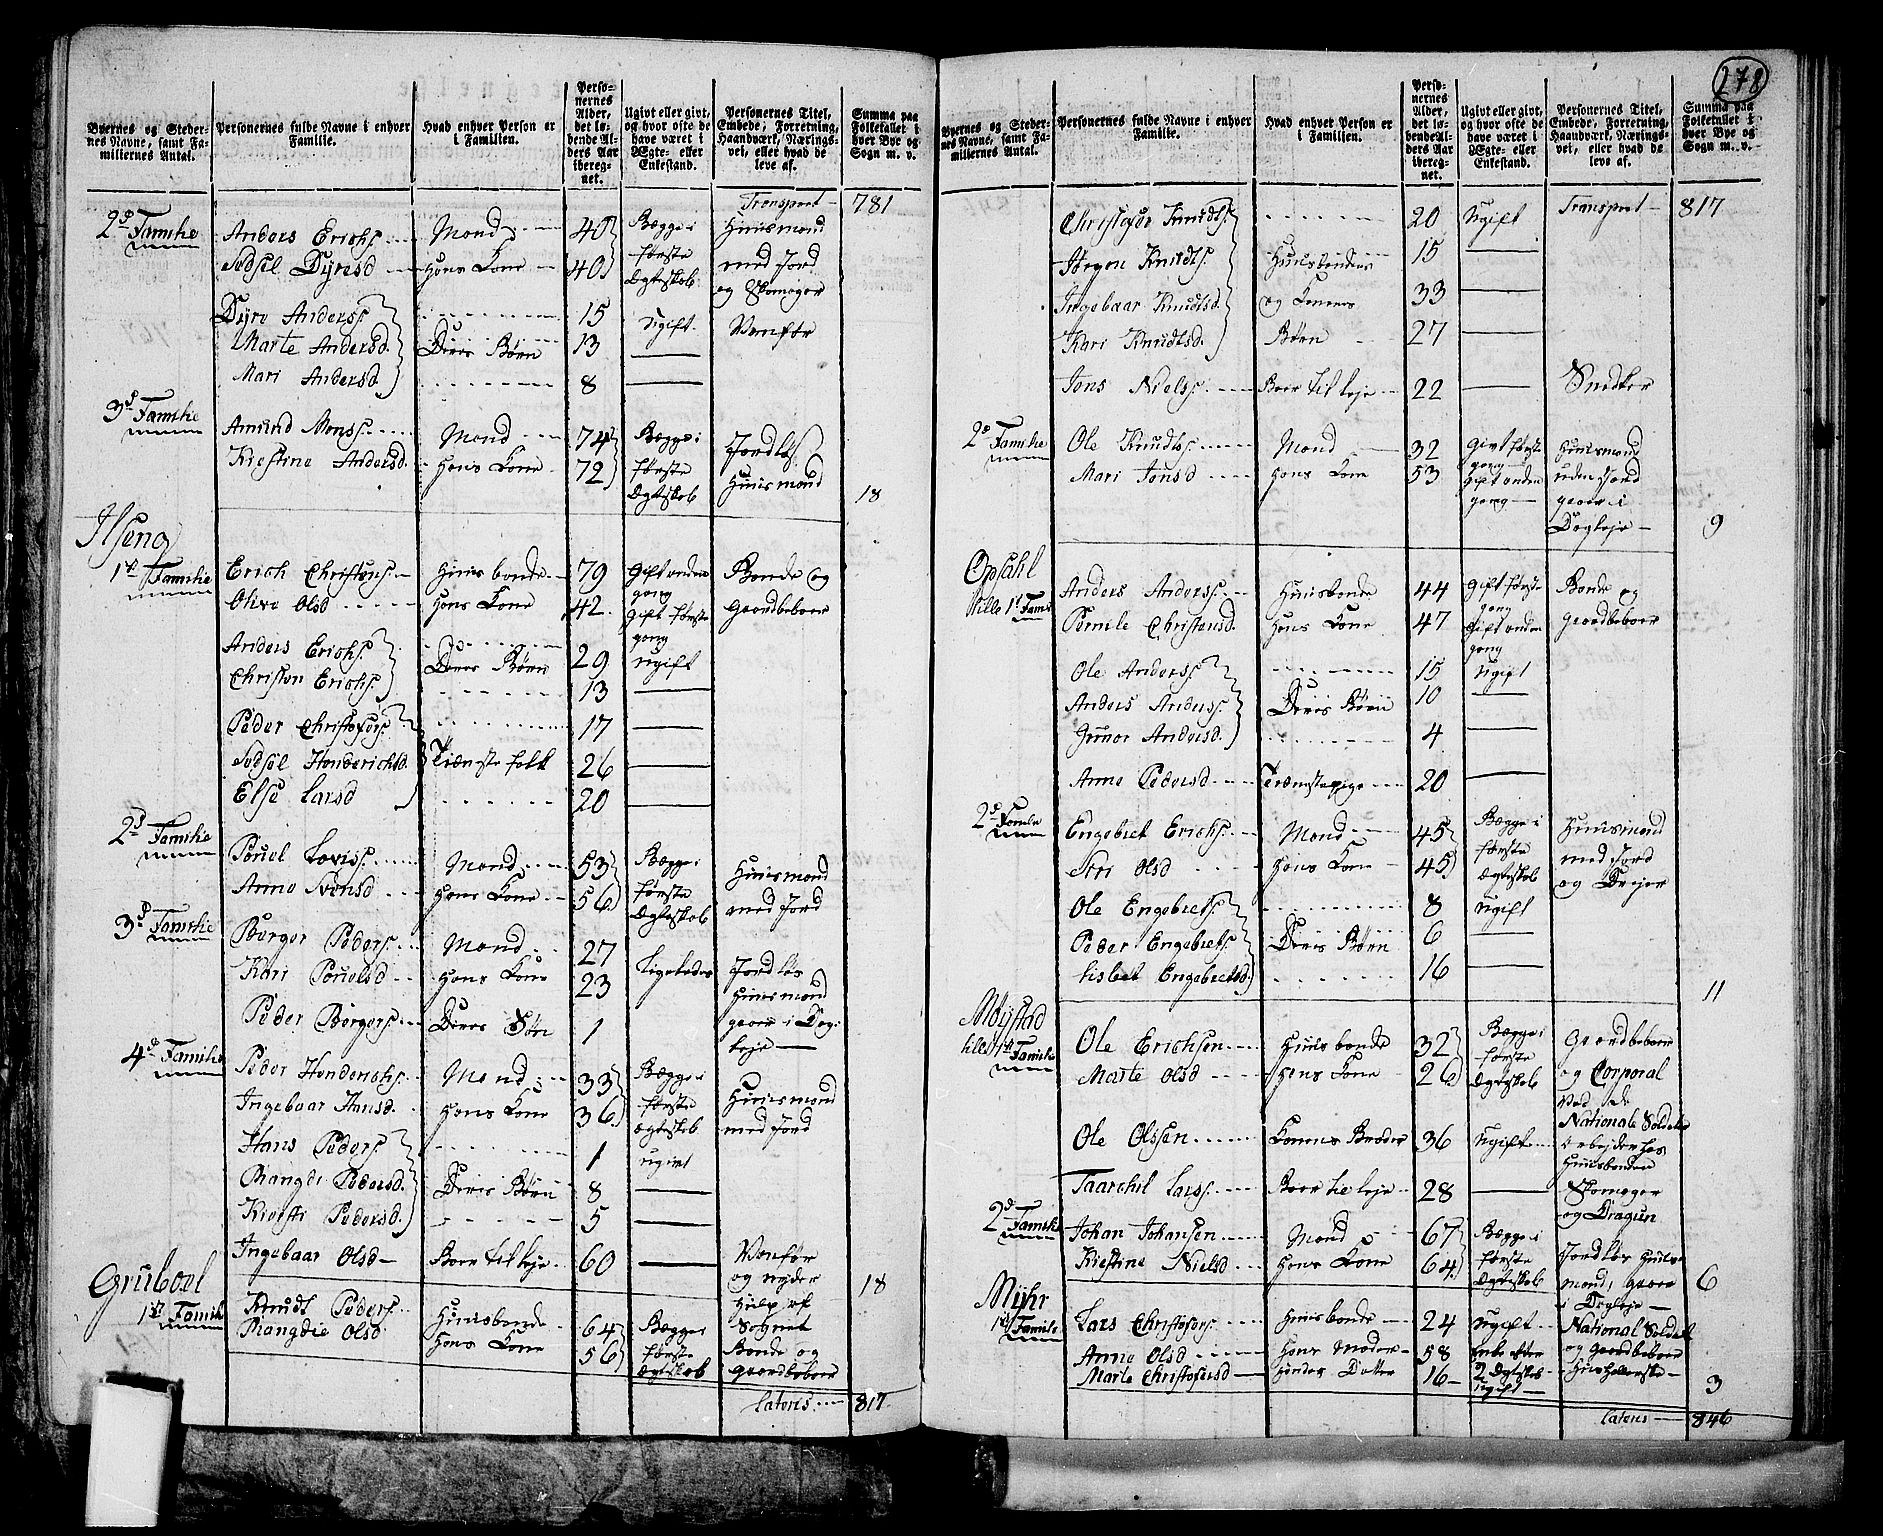 278
Byernes og Stedernes Navne, samt Familiernes Antal. | Personernes fulde Navne i enhver Familie. | Hvad enhver Person er i Familien. | Personernes Alder, det løbende Alders Aar iberegnet. | Ugivt eller givt, og hvor ofte de have været i Ægte- eller Enkestand. | Personernes Titel, Embede, Forretning, Haandværk, Næringsvei, eller hvad de leve af. | Summa paa Folketallet i hver Bye og Sogn m. v.
Transport — 781
2d Familie | Anders Erichs. | Mand | 40 | Begge i | Huusmand
Sidsel Dyresd | Hans Kone | 40 | første Ægteskab | med Jord og Skomager
Dyre Anders. | 15 | ugift | Vanfør
Marte Andersd. | Deres Børn | 13 | —
Mari Andersd | 8 | —
3d Familie | Amund Mons. | Mand | 74 | Begge i | Jordløs
Kiestine Andersd. | Hans Kone | 72 | første Ægteskab | Huusmand | 18
Ilseng
1te Familie | Erich Christens. | Huusbonde | 79 | Gift anden gang | Bonde og
Olive Olsd | Hans Kone | 42 | Gift første gang | Gaardbeboer
Anders Erichs. | 29 | ugift
Christen Erichs. | Deres Børn | 13 | —
Peder Christofers. | 17 | —
Sidsel Henderichsd. | Tieneste folk | 26 | —
Else Larsd | 20 | —
2d Familie | Pouel | Mand | 53 | Begge i | Huusmand
Anne Svensd | Hans Kone | 56 | første Ægteskab | med Jord
3d Familie | Børger Peders. | Mand | 27 | Ligeledes | Jordløs
Kari Pouelsd | Hans Kone | 23 | Huusmand
Peder Børgers. | Deres Søn | 1 | gaaer i Dagleje —
4de Familie | Peder Henderichs. | Mand | 33 | Begge i | Huusmand
Ingebaar Hansd. | Hans Kone | 36 | første Ægteskab | med Jord
Hans Peders. | 1 | ugivt
Mangde Pedersd. | Deres Børn | 8 | —
Kiersti Pedersd. | 5 | —
Ingebaar Olsd — | Boer til leje | 60 | — | Vanfør og nyder Hielp af Sognet | 18
Gruboel
1te Familie | Knudt Peders. | Huusbonde | 64 | Begge i | Bonde og
Mangdie Olsd | Hans Kone | 56 | første Ægteskab | Gaardbeboer
Lateris — 817
Byernes og Stedernes Navne, samt Familiernes Antal. | Personernes fulde Navne i enhver Familie. | Hvad enhver Person er i Familien. | Personernes Alder, det løbende Alders Aar iberegnet. | Ugivt eller givt, og hvor ofte de have været i Ægte- eller Enkestand. | Personernes Titel, Embede, Forretning, Haandværk, Næringsvei, eller hvad de leve af. | Summa paa Folketallet i hver Bye og Sogn m. v.
Transport — 817
Christofer Knudts. | 20 | Ugift
Jørgen Knudts. | Huusbondens | 15 | —
Ingebaar Knudtsd. | og Konens | 33 | —
Kari Knudtsd. | Børn | 27 | —
Jens Niels. | Boer til leje | 22 | — | Snedker
2d Familie | Ole Knudts. | Mand | 32 | Givt første gang | Huusmand
Mari Jonsd | Hans Kone | 53 | Gift anden gang — | uden Jord gaaer i Dagleje — | 9
Opsahl
lille 1te Famil. | Anders Anders. | Huusbonde | 44 | Gift første gang | Bonde og
Pernile Christensd. | Hans Kone | 47 | Gift anden gang | Gaardbeboer
Ole Anders. | 15 | ugift
Anders Anders. | Deres Børn | 10 | —
Gunor Andersd. | 4 | —
Anne Pedersd | Tienestepige | 20 | —
2d Familie | Engebret Erichs. | Mand | 45 | Begge i | Huusmand
Siri Olsd | Hans Kone | 45 | første Ægteskab | med Jord og Drejer
Ole Engebrets. | 8 | ugift
Peder Engebrets. | Deres Børn | 6 | —
Lisbet Engebretsd. | 16 | — | 11
Møystad
lille 1te Familie | Ole Erichsen | Huusbonde | 32 | Begge i | Gaardbeboer
Marte Olsd | Hans Kone | 26 | første Ægteskab | og Corporal Ved de Nationale Soldater
Ole Olssen | Konens Broder | 36 | Ugift | arbejder hos Huusbonden
Taarchil Lars. | Boer til leje | 28 | — | Skomager og Dragun
2d Familie | Johan Johansen | Mand | 67 | Begge i | Jordløs Huus-
Kiestine Nielsd | Hans Kone | 64 | første Ægteskab | mand, gaaer i Dagleje — | 6
Myhr
1te Familie | Lars Christofers. | Huusbonde | 24 | Ugift | National Soldat
Anne Olsd | Hans Moder | 58 | Enke efter 2 Ægteskab | og Gaardbeboer
Marte Christofersd — | Hendes Datter | 16 — | Ugift — | 3
Lateris — 846